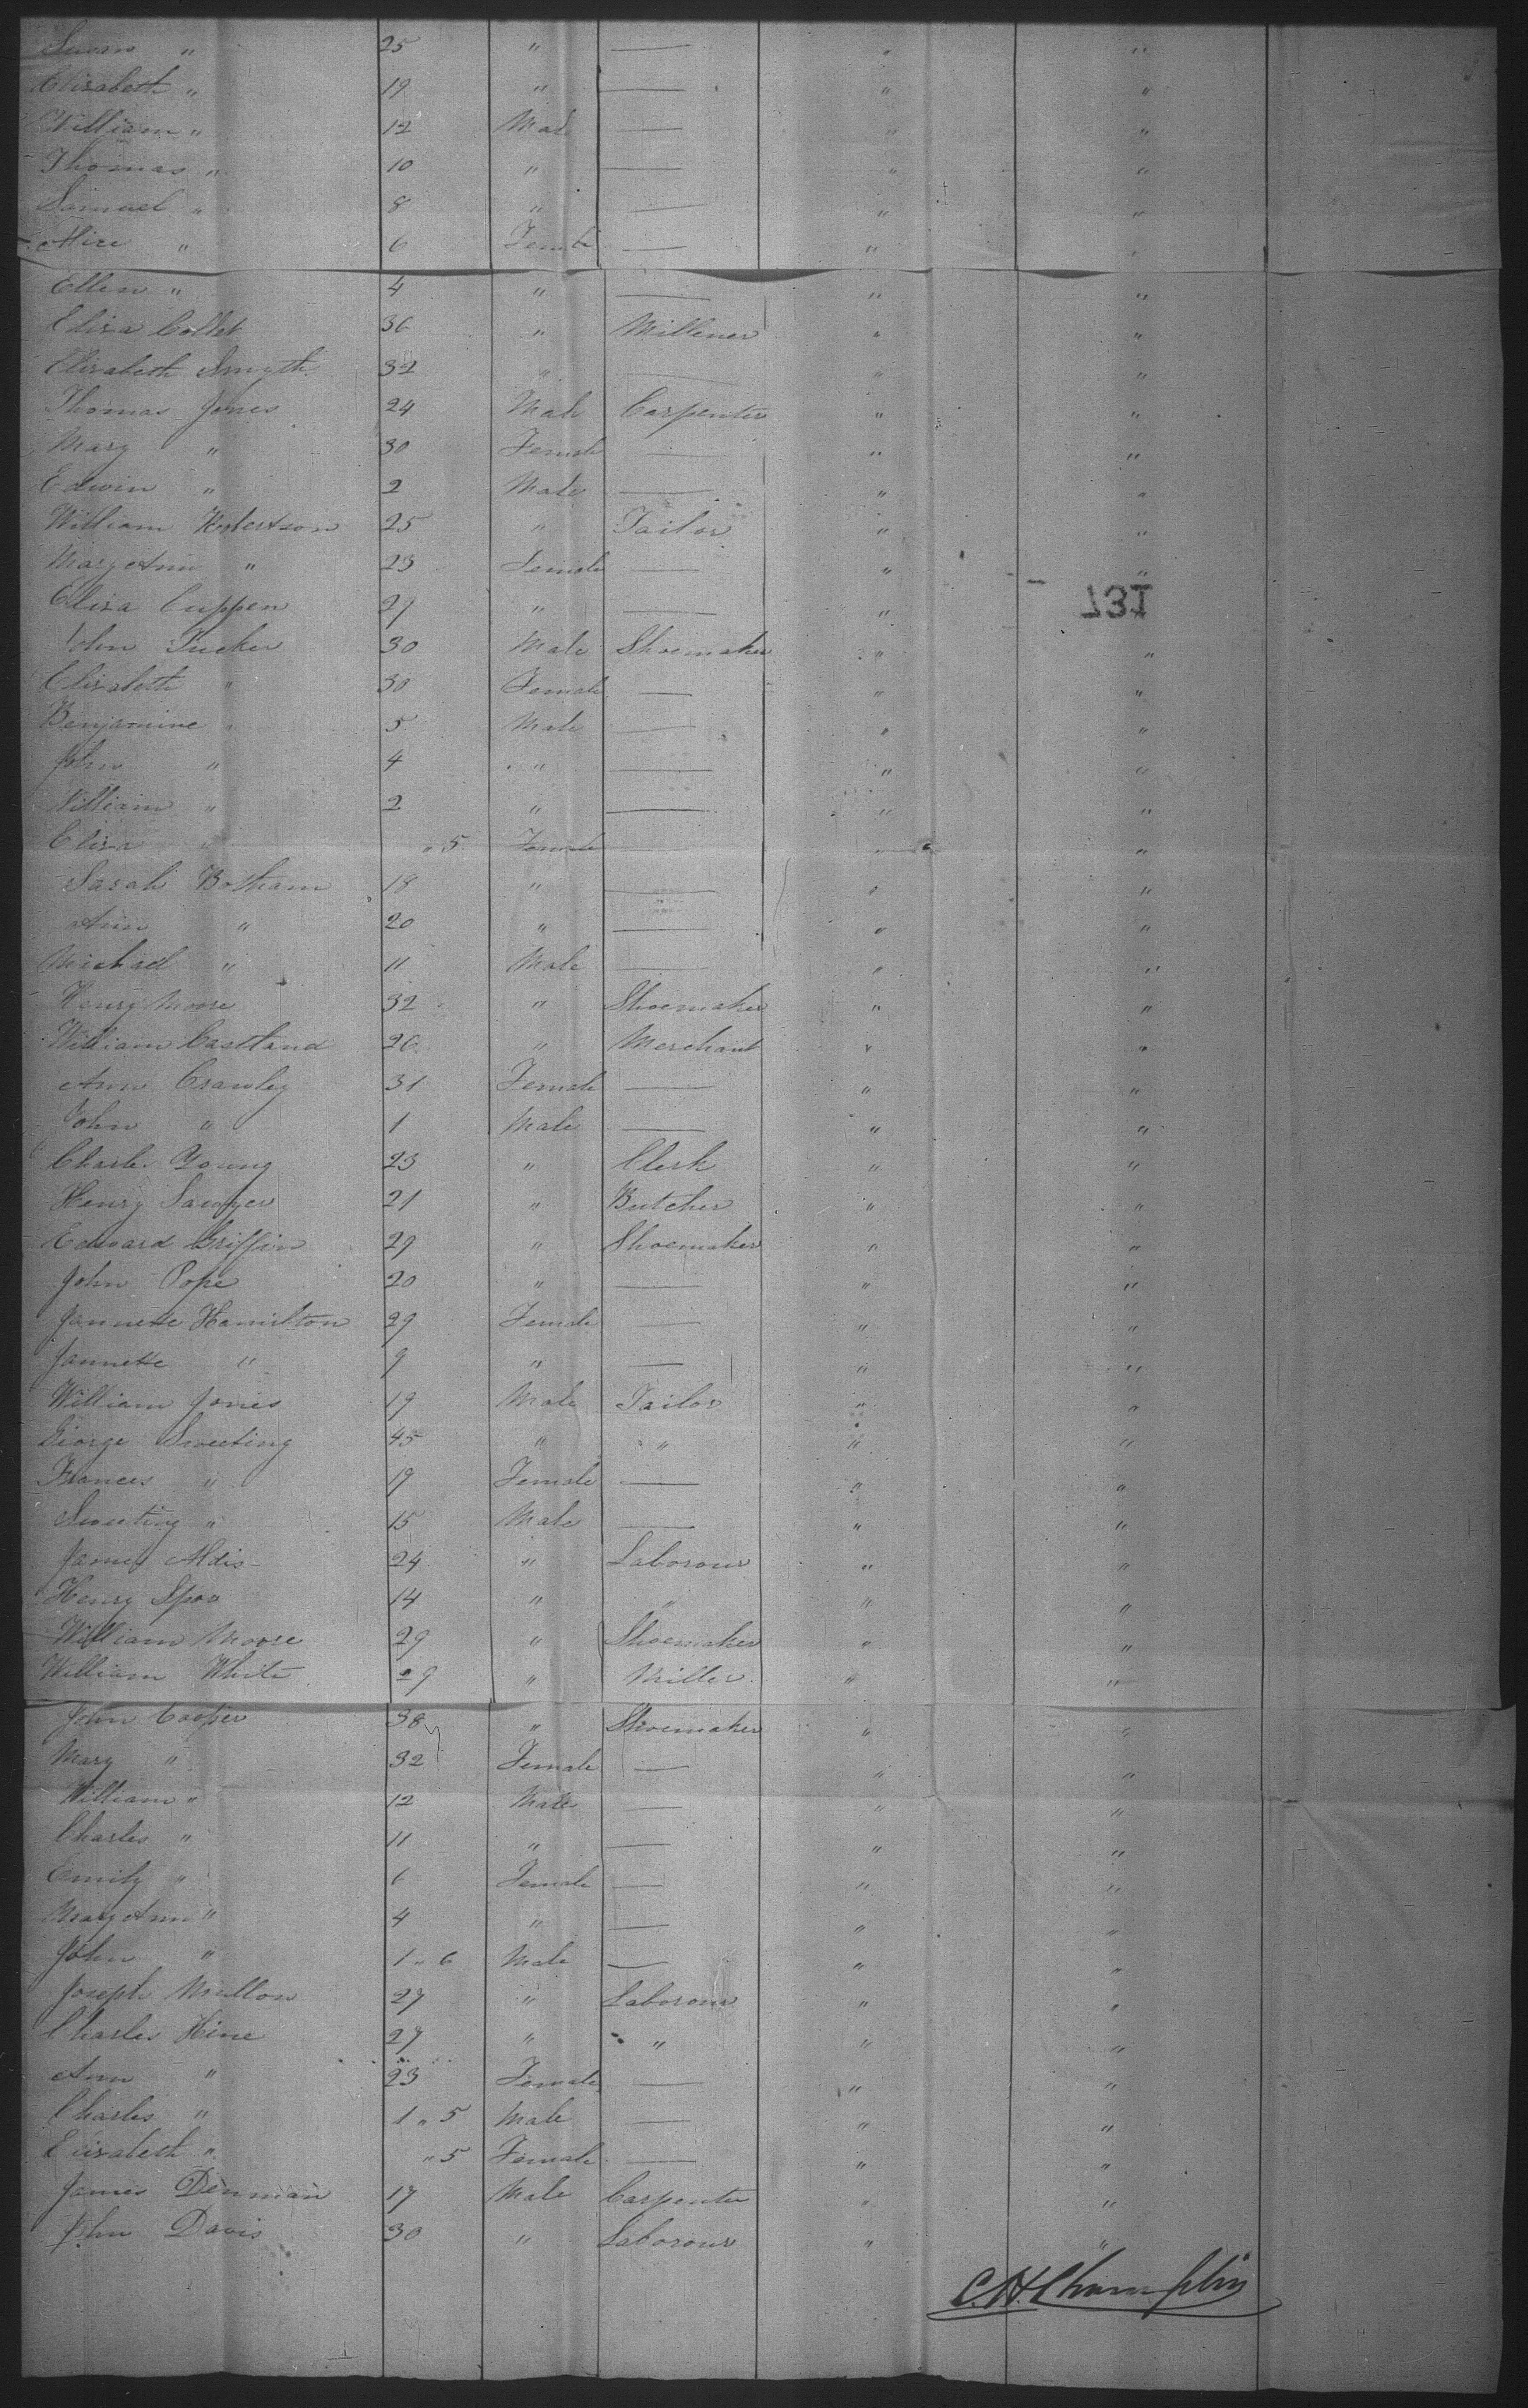 Susan " 25 " — " "
Elisabeth " 19 " — " "
William " 12 Male — " "
Thomas " 10 " — " "
Samuel " 8 " — " "
Alice " 6 Female — " "
Ellen " 4 " — " "
Elisa Collet 36 " Millener " "
Elisabeth Smyth 32 " — " "
Thomas Jones 24 Male Carpenter " "
Mary " 30 Female — " "
Edwin " 2 Male — " "
William Robertson 25 " Tailor " "
Mary Ann " 23 Female — " "
Elisa Cuppen 29 " — " "
731
John Tucker 30 Male Shoemaker " "
Elisabeth " 30 Female — " "
Benjamine " 5 Male — " "
John " 4 " — " "
William " 2 " — " "
Elisa " " 5 Female — " "
Sarah Botham 18 " — " "
Ann " 20 " — " "
Michael " 11 Male — " "
Henry Moore 32 " Shoemaker " "
William Eastland 26 " Merchant " "
Ann Crawley 31 Female — " "
John " 1 Male — " "
Charles Young 23 " Clerk " "
Henry Sawyer 21 " Butcher " "
Edward Griffin 29 " Shoemaker " "
John Pope 20 " — " "
Jannette Hamilton 29 Female — " "
Jannette " 9 " — " "
William Jones 19 Male Tailor " "
George Sweeting 45 " " " "
Frances " 19 Female — " "
Sweeting " 15 Male — " "
James Aldis 24 " Laborour " "
Henry 14 " " " "
William Moore 29 " Shoemaker " "
William White 29 " Miller " "
John Cooper 38 " Shoemaker " "
Mary " 32 Female — " "
William " 12 Male — " "
Charles " 11 " — " "
Emily " 6 Female — " "
Mary Ann " 4 " — " "
John " 1 " 6 Male — " "
Joseph Mellon 27 " Laborour " "
Charles Hine 27 " " " "
Ann " 23 Female — " "
Charles " 1 " 5 Male — " "
Elisabeth " " 5 Female — " "
James Denman 17 Male Carpenter " "
John Davis 30 " Laborour " "
C. H. Champlin